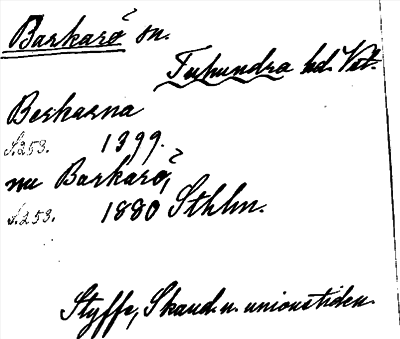 Barkarö sn.
Tuhundra hd. Vstm.
Berkarna
S.253. 1399.
nu Barkarö,
S.253. 1880 Sthlm.
Styffe, Skand. u. unionstiden